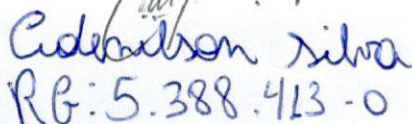 Cidenilson Silva
RG: 5.388.413-0